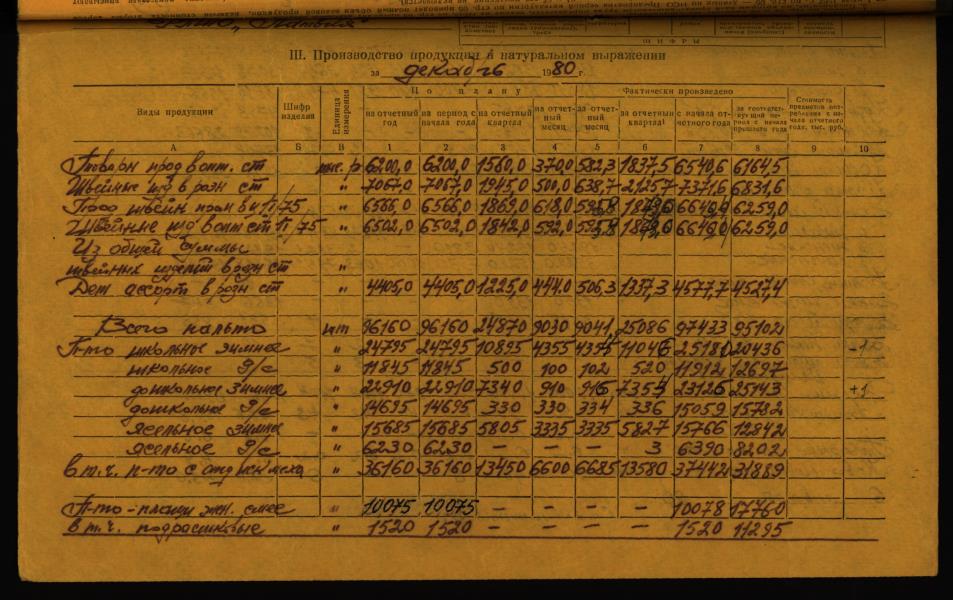 III. Производство продукции в натуральном выражении
за декабрь 1980 г.
Виды продукции | Шифр изделия | Единица измерения | По плану | Фактически произведено | Стоимость
на отчетный год | на период с начала года | на отчетный квартал | на отчетный месяц | за отчетный месяц | за отчетный квартал | с начала отчетного года | за соответствующий период с начала прошлого года
А | Б | В | 1 | 2 | 3 | 4 | 5 | 6 | 7 | 8 | 9 | 10
Товарн прод в опт. ст | тыс. р | 6200,0 | 6200,0 | 1560,0 | 370,0 | 582,3 | 1837,5 | 6540,6 | 6164,5
Швейные изд в розн ст | " | 7067,0 | 7067,0 | 1945,0 | 500,0 | 638,7 | 2125,7 | 7371,6 | 6831,6
швейн | 75 | " | 6566,0 | 6566,0 | 1869,0 | 618,0 | 6259,0
Швейные изд в опт ст | 75 | " | 6502,0 | 6502,0 | 1842,0 | 592,0 | 6259,0
Из общей суммы
швейных изделий в розн ст | "
Дет ассорт в розн ст | " | 4405,0 | 4405,0 | 1225,0 | 444,0 | 506,3 | 1337,3 | 4577,7 | 4527,4
Всего пальто | шт | 96160 | 96160 | 24870 | 9030 | 9041 | 25086 | 97433 | 95102
П-то школьное зимнее | " | 24795 | 24795 | 10895 | 4355 | 11046 | 25181 | 20436
школьное д/с | " | 11845 | 11845 | 500 | 100 | 102 | 520 | 11912 | 12697
дошкольное зимнее | " | 22910 | 22910 | 7340 | 910 | 915 | 7354 | 23126 | 25143 | +1
дошкольное д/с | " | 14695 | 14695 | 330 | 330 | 334 | 336 | 15059 | 15782
ясельное зимнее | " | 15685 | 15685 | 5805 | 3335 | 3335 | 5827 | 15766 | 12842
ясельное д/с | " | 6230 | 6230 | — | — | — | 3 | 6390 | 8202
в т.ч. п-то с отд меха | " | 36160 | 36160 | 13450 | 6600 | 6685 | 13580 | 37442 | 31889
П-то-плащи жен. | " | 10075 | 10075 | — | — | — | — | 10078 | 17760
в т.ч. подростковые | " | 1520 | 1520 | — | — | — | — | 1520 | 11295